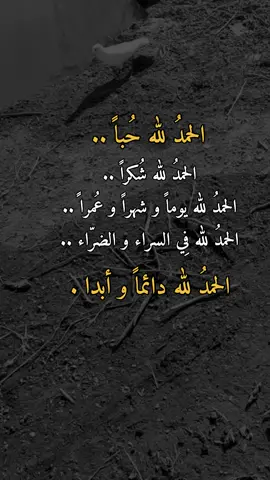 الحمدُ لله حُباً ..
الحمدُ لله شُكراً ..
الحمدُ لله يوماً و شهراً و عُمراً ..
الحمدُ لله فِي السراء و الضرّاء ..
الحمدُ لله دائماً و أبدا .